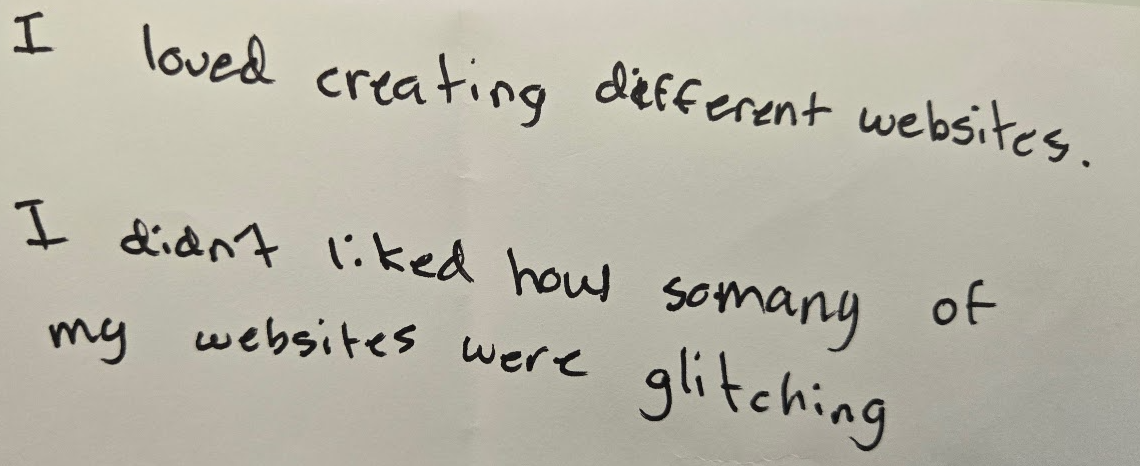 I loved creating different websites.
I didn't liked how somany of
my websites were glitching